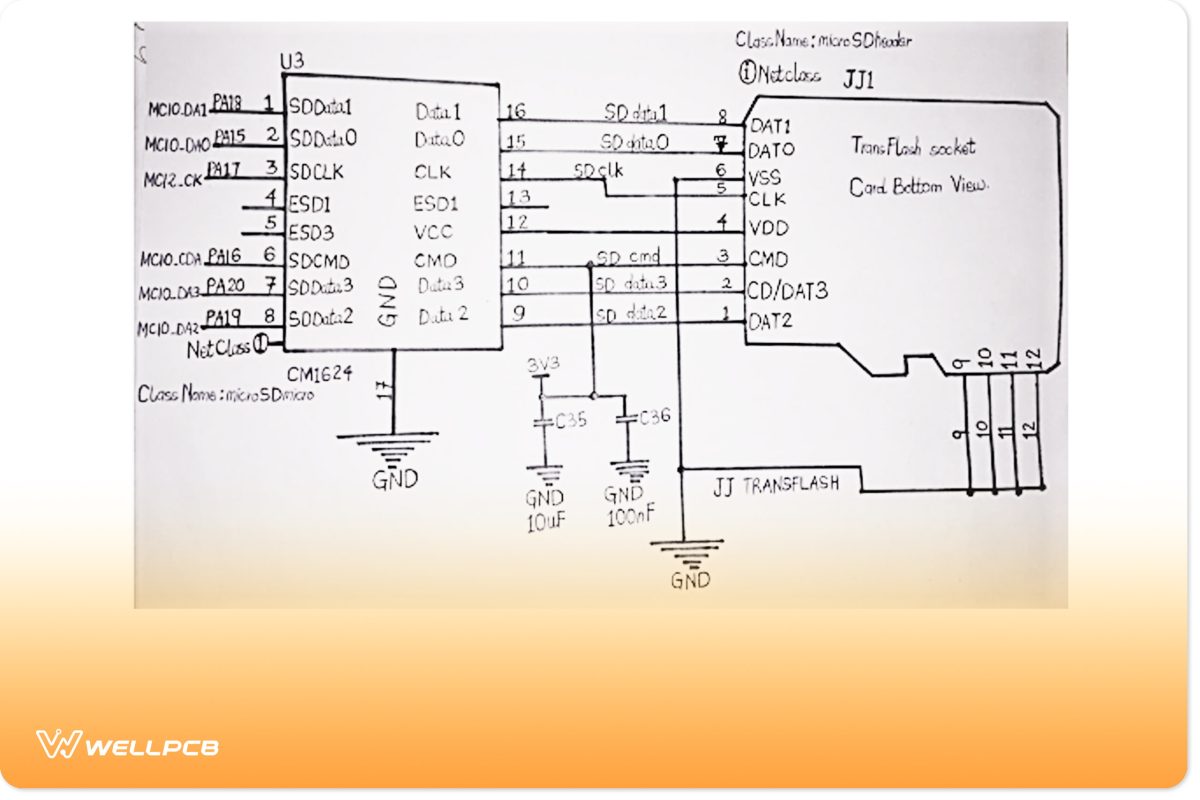 ClassName: microSDheader
① Netclass JJ1
U3
MCIO_DA1 PA18 1 SDData1 Data1 16 SD data1 8 DAT1
MCIO_DA0 PA15 2 SDData0 Data0 15 SD data0 7 DAT0
MCI2_CK PA17 3 SDCLK CLK 14 SD clk 6 VSS
5 CLK
4 ESD1 ESD1 13
5 ESD3 VCC 12 4 VDD
MCIO_CDA PA16 6 SDCMD CMD 11 SD cmd 3 CMD
MCIO_DA3 PA20 7 SDData3 Data3 10 SD data3 2 CD/DAT3
MCIO_DA2 PA19 8 SDData2 Data2 9 SD data2 1 DAT2
GND
NetClass ①
CM1624
ClassName: microSDmicro
17
GND
TransFlash socket
Card Bottom View.
3V3
C35
C36
GND
10uF
GND
100nF
9 10 11 12
9 10 11 12
JJ TRANSFLASH
GND
WELLPCB